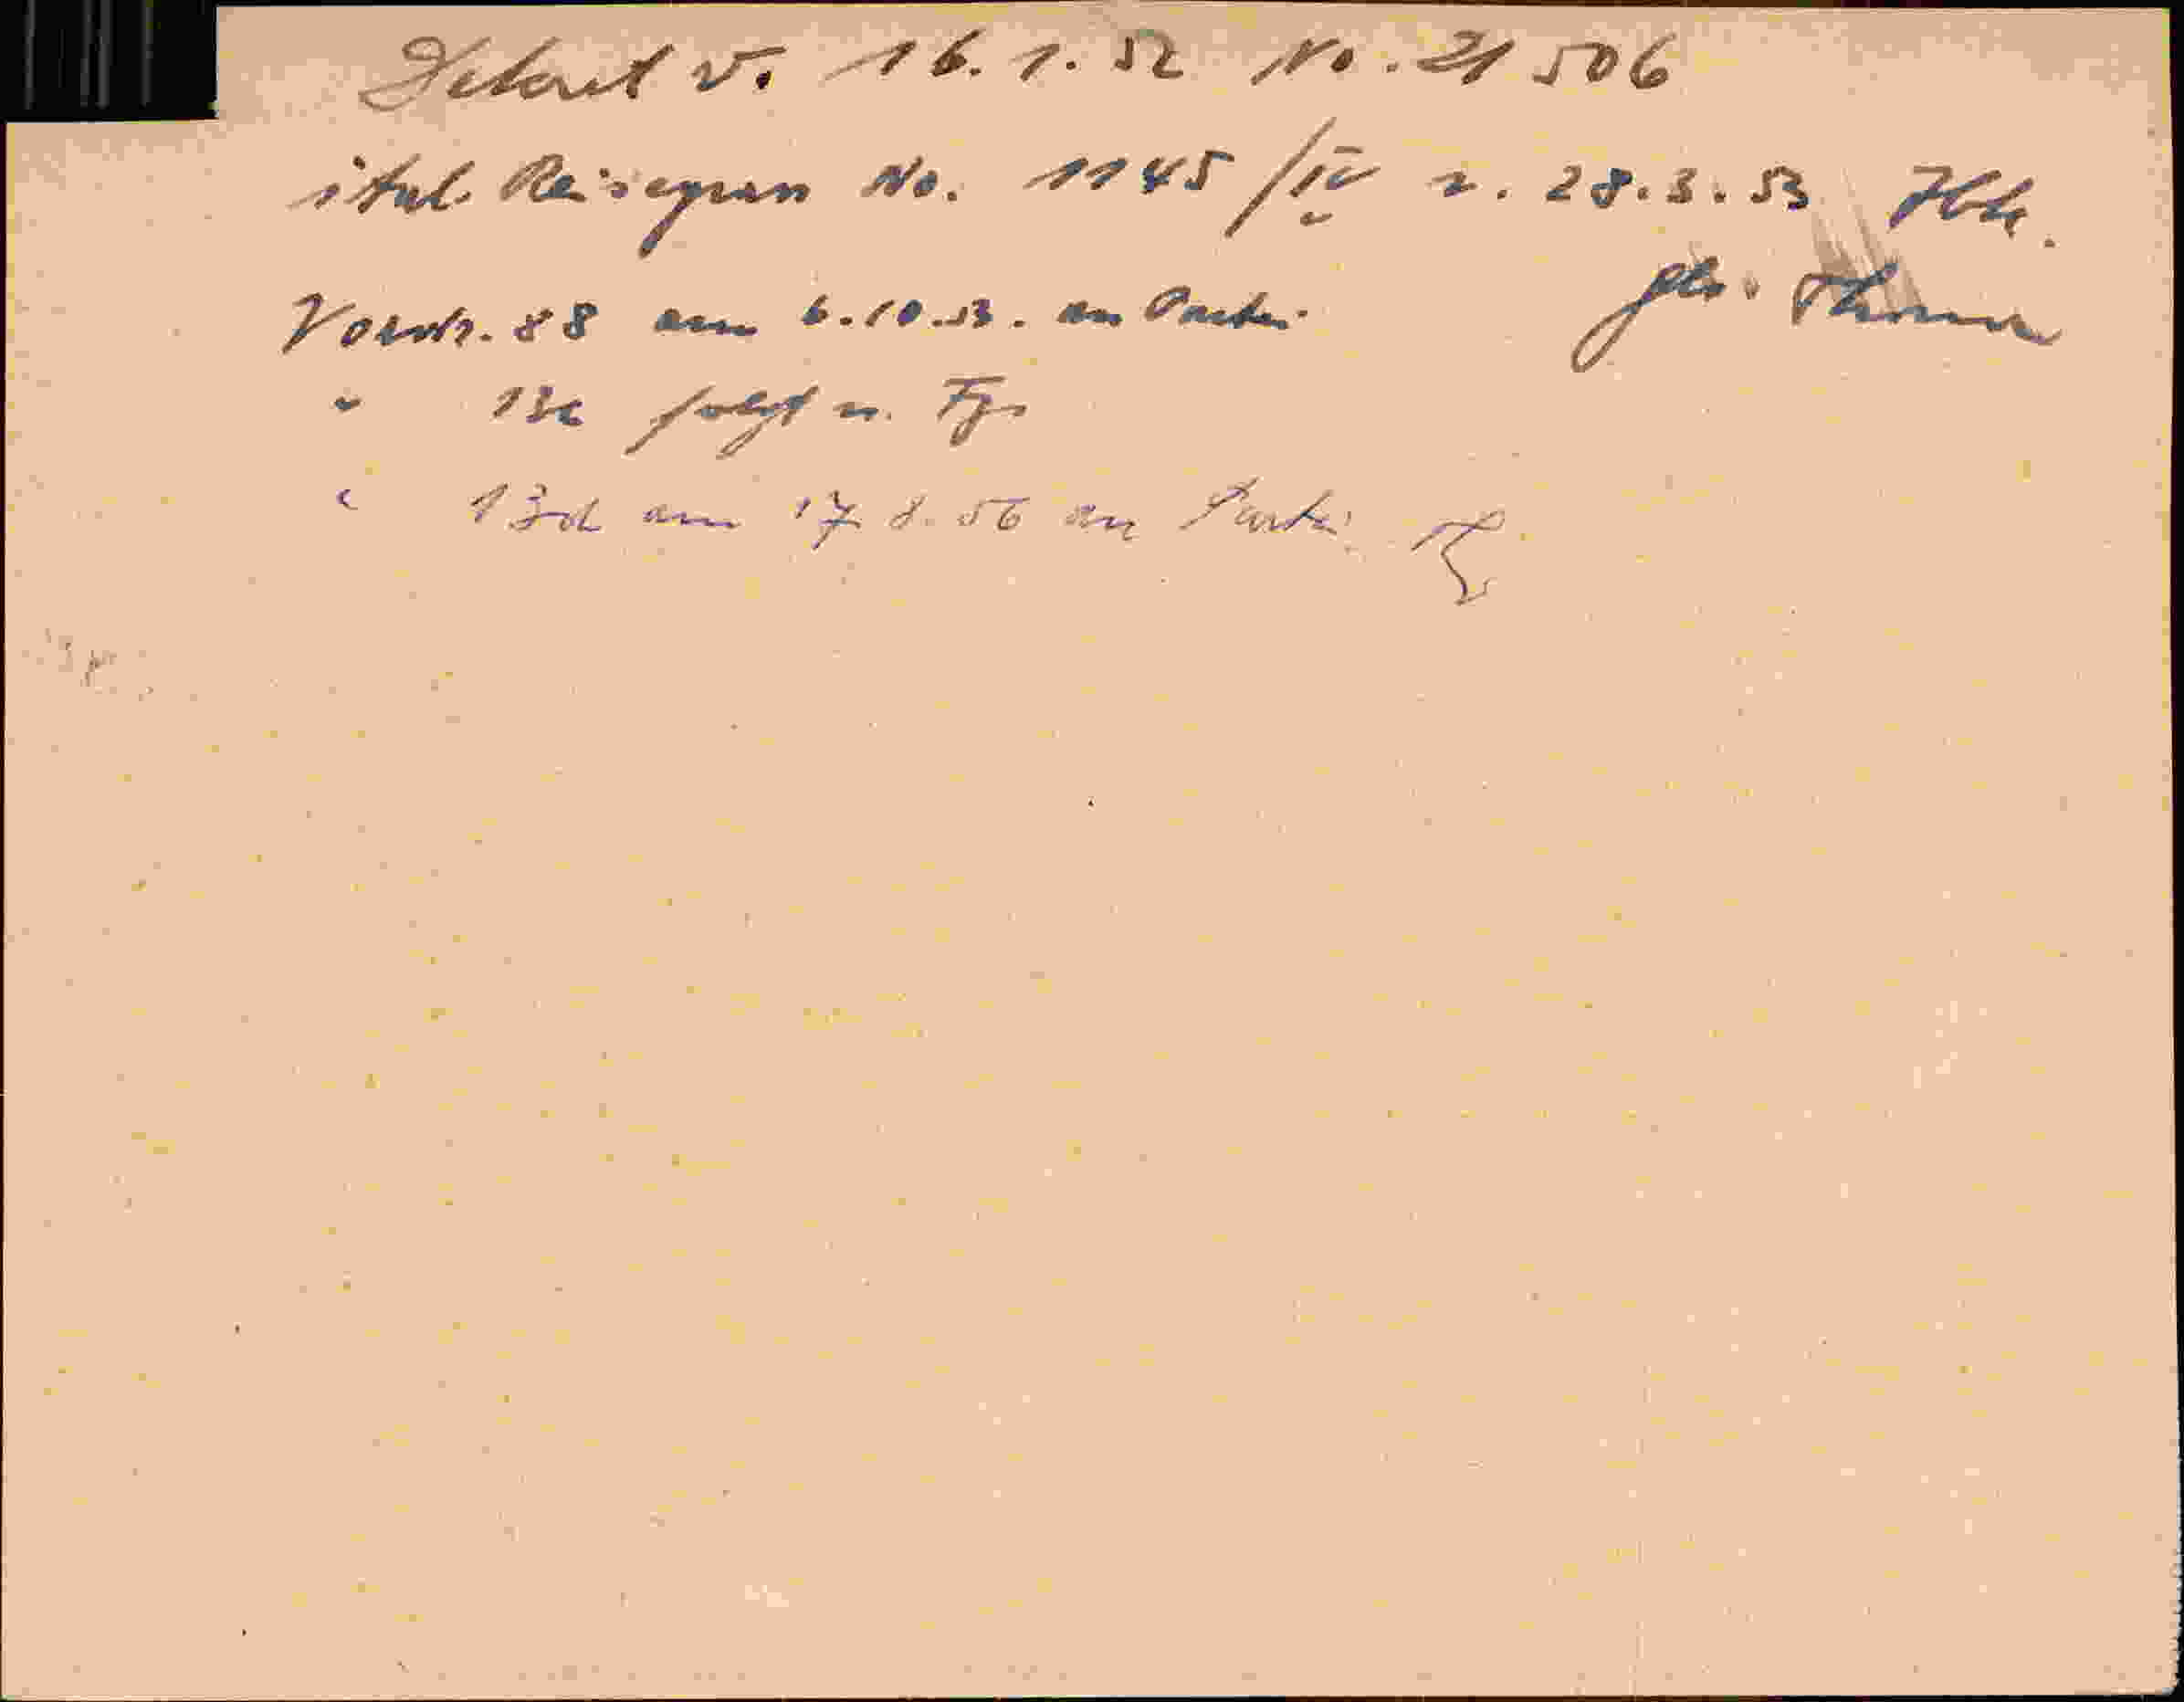 Dekret v. 16.1.52 No. 21506
ital. Reisepass No. 1145/IV v. 28.3.53
Vordr. 88 am 6.10.53. an Partei
" 13c folgt
" 13d am 17 8. 56 an Partei